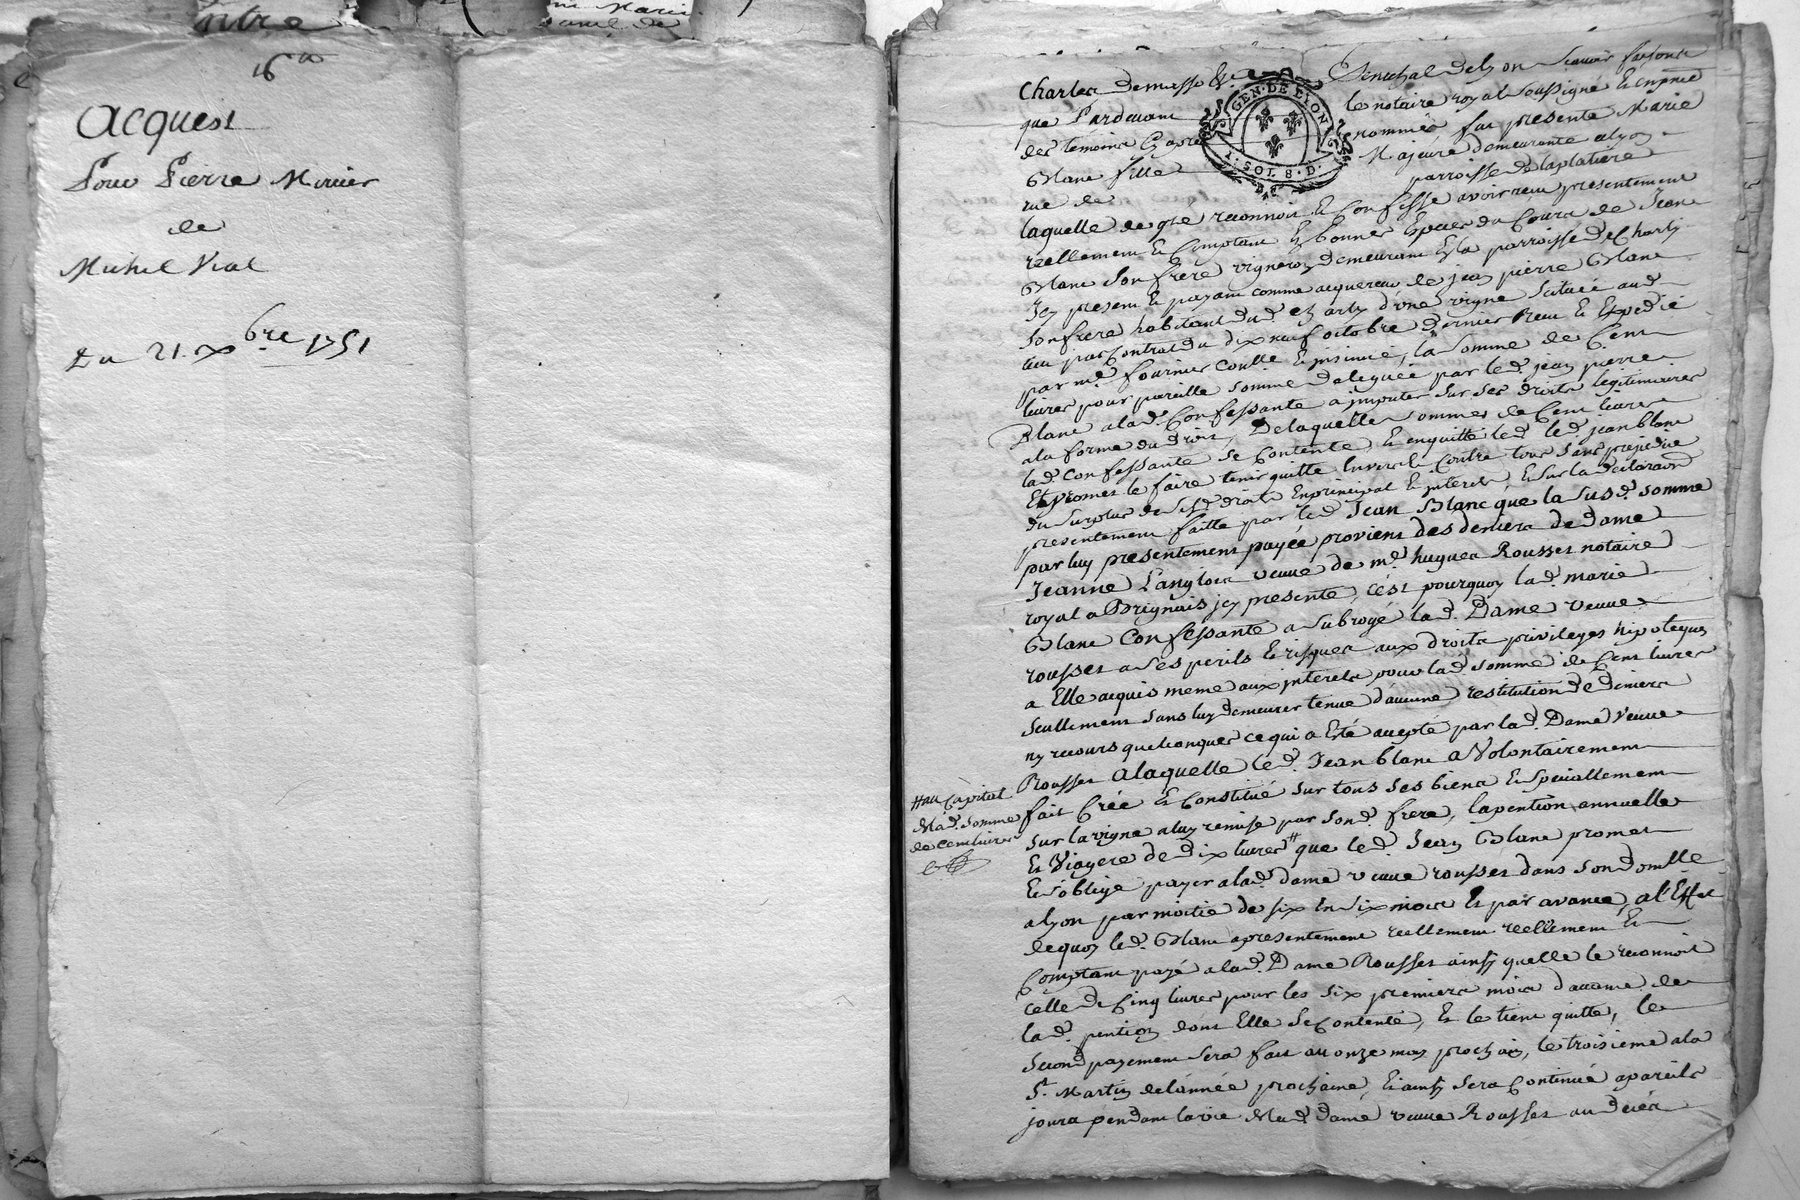 ntre
16
Acquest
Pour Pierre Mercier
de
Michel Vial
Du 21 xbre 1751
Charles Demasso &c. Senechal de Lyon scavoir faisons
que Pardevant le notaire royal soussigné & en pnce
des temoins cy apres nommés fut presente Marie
Blanc fille Majeure demeurante a Lyon
rue de parroisse de la platiere
GEN·DE LYON
1·SOL 8·D
laquelle de gré reconnoit & Confesse avoir receu presentement
reellement & Comptant En bonnes Especes du Cours de Jean
Blanc Son frere vigneron demeurant En la parroisse de Charly
Icy present & payant comme acquereur de jean pierre Blanc
Son frere habitant dud. charly d'une vigne Scituée aud.
lieu par Contrat du dix neuf octobre dernier Receu & Expedié
par me. fournier Conllé & insinué, la Somme de Cent
livres pour pareille somme deleguée par led. jean pierre
Blanc a lad. Confessante a imputer sur ses droits legitimaires
a la forme du droit, De laquelle somme de Cent livres
lad. Confessante se Contente & en quitte led. led. jean blanc
Et promet le faire tenir quitte Envers & Contre tous sans prejudice
du surplus de sesd. droits En principal & interets, & sur la declaraon
presentement faitte par led. Jean Blanc que la susd. somme
par luy presentement payée provient des deniers de dame
Jeanne Langlois veuve de me. hugues Rousset notaire
royal a Brignais jcy presente, c'est pourquoy lad. marie
Blanc Confessante a subrogé lad. Dame veuve
rousset a ses perils & risques aux droits privileges hipoteques
a Elle acquis meme aux interets pour lad. somme de Cent livres
seullement sans luy demeurer tenue d'aucune restitution de deniers
ny recours quelconques ce qui a Eté accepté par lad. Dame Veuve
Rousset a laquelle led. Jean blanc a Volontairement
fait Crée & Constitué sur tous ses biens & speciallement
sur la vigne a luy remise par sond. frere, la pention annuelle
& Viagere de dix livres # que led. Jean Blanc promet
& s'oblige payer a lad. dame veuve rousset dans son domlle
a lyon par moitié de six En six mois & par avance, a l'Effet
de quoy led. Blanc a presentement reellement reellement &
Comptant payé a lad. Dame Rousset ainsy quelle le reconnoit
celle de Cinq livres pour les six premiers mois d'avance de
lad. pention dont Elle se Contente, & le tient quitte, le
second payement sera fait au onze may prochain, le troisieme a la
St. Martin de l'année prochaine, & ainsy sera Continué a pareils
jours pendant la vie de lad. dame veuve Rousset au deces
# au Capital
de lad. somme
de cent livres